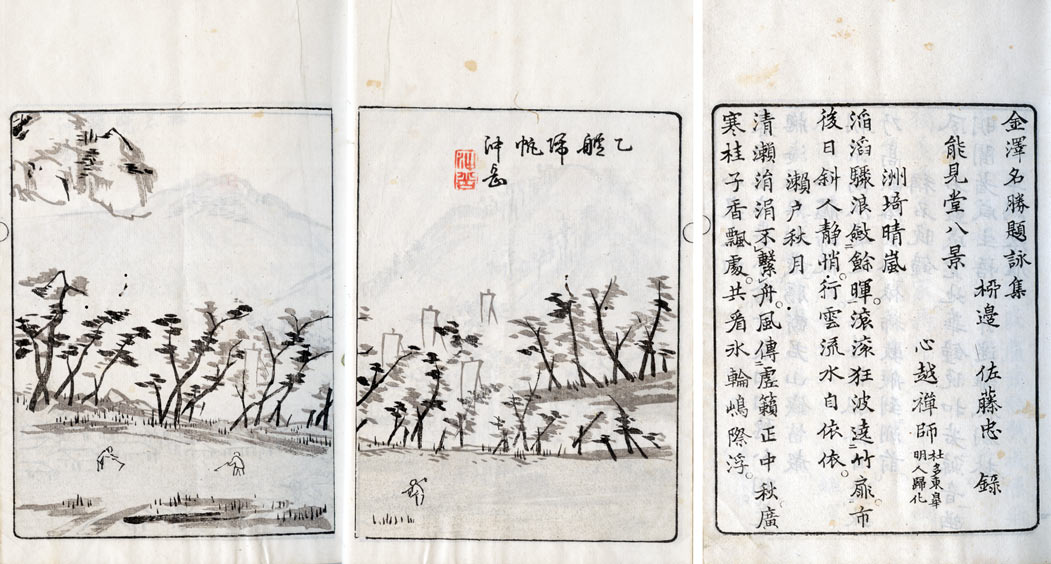 金澤名勝題詠集
邊 佐藤忠 錄
能見堂八景 心越禪師 杜多東皐
明人歸化
洲埼晴嵐
滔滔驟浪斂餘暉。滾滾狂波遶竹扉。市
後日斜人靜悄。行雲流水自依依。
瀨戶秋月
清瀨涓涓不繫舟。風傳虛籟正中秋。廣
寒桂子香飄處。共看氷輪嶋際浮。
乙艫歸帆
冲岳